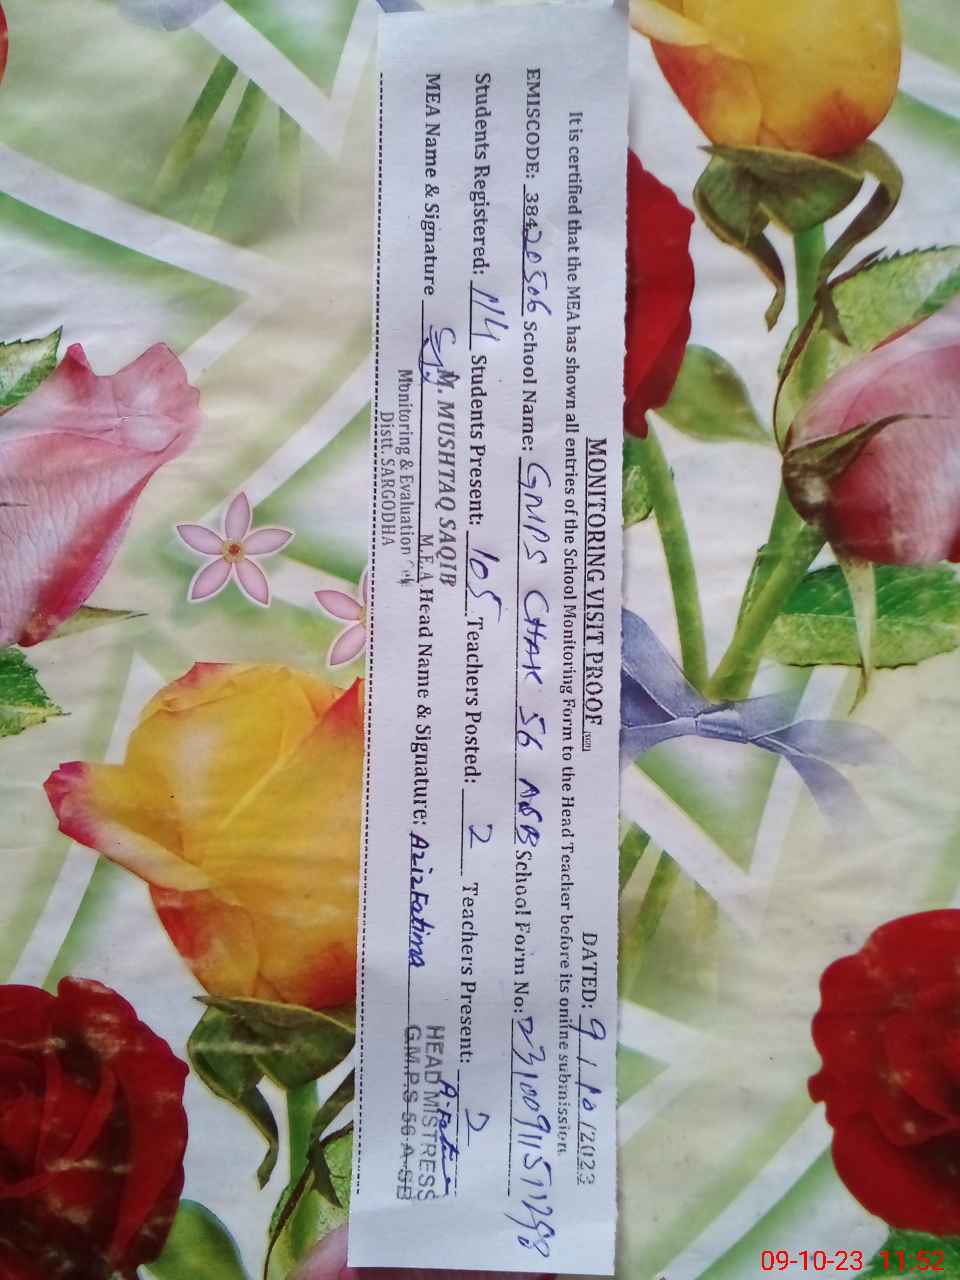 MONITORING VISIT PROOF DATED: 9/10/2023
It is certified that the MEA has shown all entries of the School Monitoring Form to the Head Teacher before its online submission.
EMISCODE: 38420506 School Name: GMPS CHAK 56 ASB School Form No:
Students Registered: 114 Students Present: 105 Teachers Posted: 2 Teachers Present: 2
MEA Name & Signature M. MUSHTAQ SAQIB M.E.A Head Name & Signature: Aziz Fatima A.Fatima
Monitoring & Evaluation Cell
Distt. SARGODHA
HEAD MISTRESS
G.M.P.S 56-A-SB
09-10-23 11:52